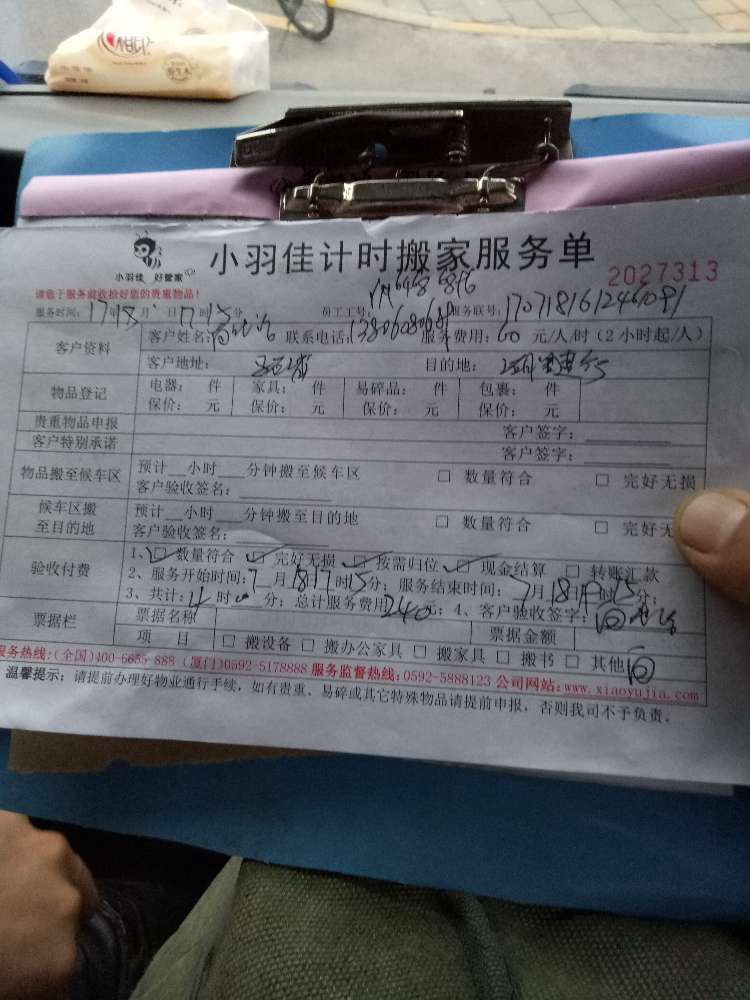 心相印
小羽佳 好管家
小羽佳计时搬家服务单
2027313
请您于服务前收拾好您的贵重物品！
服务时间： 月 日 时 分 员工工号： 服务联号：170718161246081
客户资料
客户姓名： 联系电话： 服务费用：60 元/人/时（2小时起/人）
客户地址： 目的地：
物品登记
电器： 件 家具： 件 易碎品： 件 包裹： 件
保价： 元 保价： 元 保价： 元 保价： 元
贵重物品申报 客户签字：
客户特别承诺 客户签字：
物品搬至候车区
预计__小时___分钟搬至候车区 □ 数量符合 □ 完好无损
客户验收签名：
候车区搬
至目的地
预计__小时___分钟搬至目的地 □ 数量符合 □ 完好无
客户验收签名：
验收付费
1、☑ 数量符合 ☑ 完好无损 ☑ 按需归位 ☑ 现金结算 □ 转账汇款
2、服务开始时间：7月18 17时15分；服务结束时间：7月18 时15分；
3、共计：4时 分；总计服务费用240元；4、客户验收签字：
票据栏
票据名称 票据金额
项 目 □ 搬设备 □ 搬办公家具 □ 搬家具 □ 搬书 □ 其他
服务热线：(全国)400-6655-888 (厦门)0592-5178888 服务监督热线：0592-5888123 公司网站：www.xiaoyujia.com
温馨提示：请提前办理好物业通行手续，如有贵重、易碎或其它特殊物品请提前申报，否则我司不予负责。